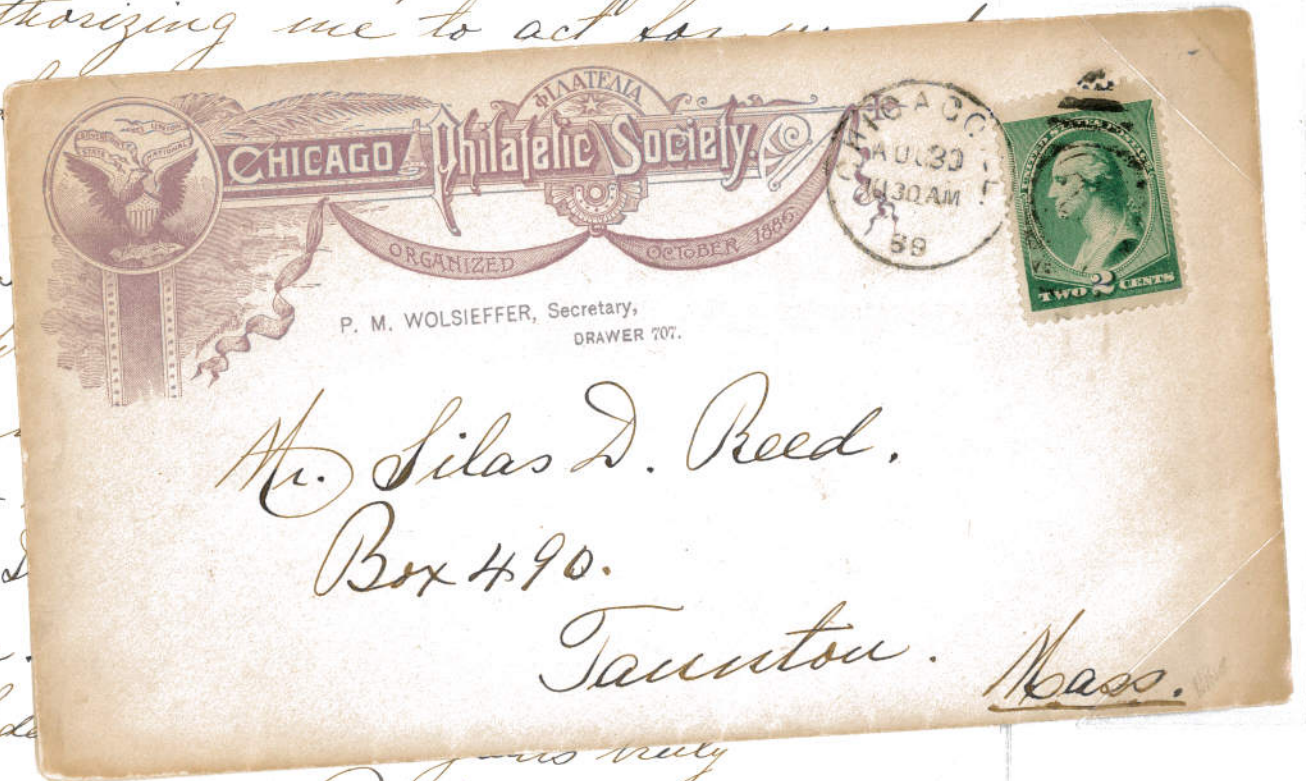 thorizing me to act for
ΦΙΛΑΤΕΛΙΑ
CHICAGO Philatelic Society.
STATE UNION NATIONAL
ORGANIZED OCTOBER 1886
CHICAGO
AUG 30
30 AM
89
TWO 2 CENTS
P. M. WOLSIEFFER, Secretary,
DRAWER 707.
Mr. Silas D. Reed.
Box 490.
Taunton.
Mass.
truly